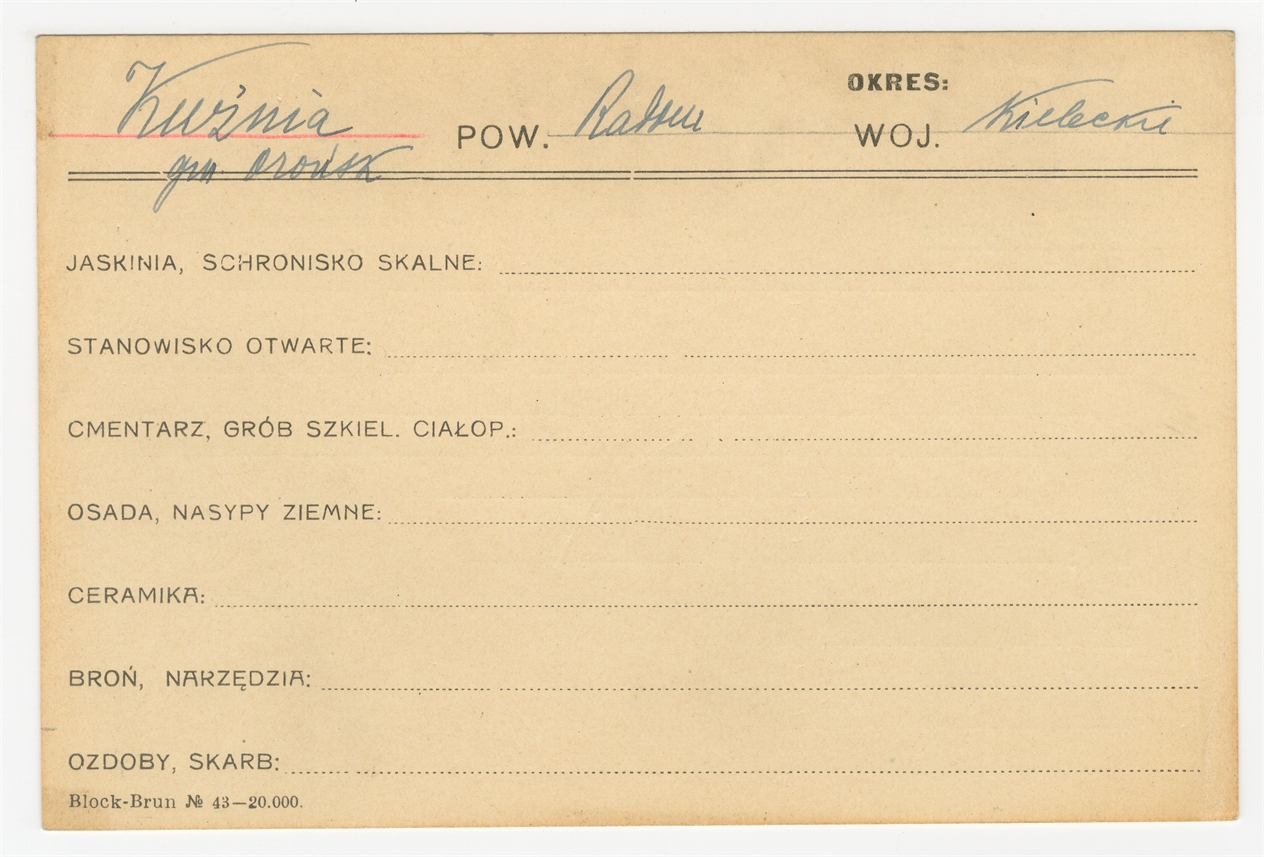 OKRES:
Kuźnia POW. Radom WOJ. Kieleckie
gm Orońsk
JASKINIA, SCHRONISKO SKALNE:
STANOWISKO OTWARTE:
CMENTARZ, GRÓB SZKIEL. CIAŁOP.:
OSADA, NASYPY ZIEMNE:
CERAMIKA:
BROŃ, NARZĘDZIA:
OZDOBY, SKARB:
Block-Brun № 43—20.000.